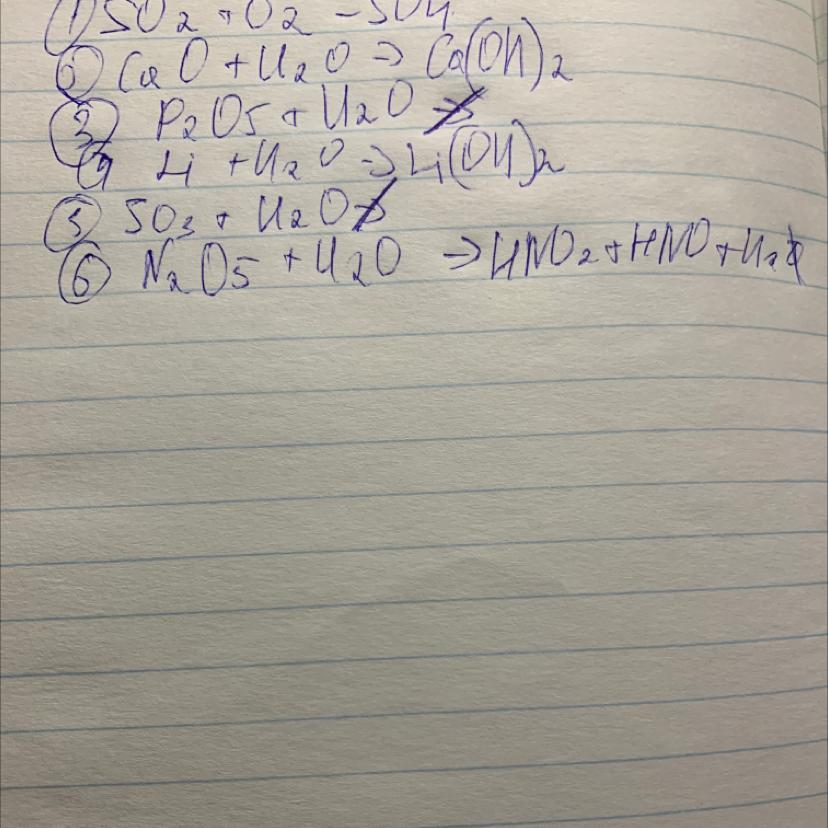 ① SO2 + O2 – SO4
② CaO + H2O → Ca(OH)2
③ P2O5 + H2O ↛
④ Li + H2O → Li(OH)2
⑤ SO3 + H2O ↛
⑥ N2O5 + H2O → HNO2 + HNO + H2O